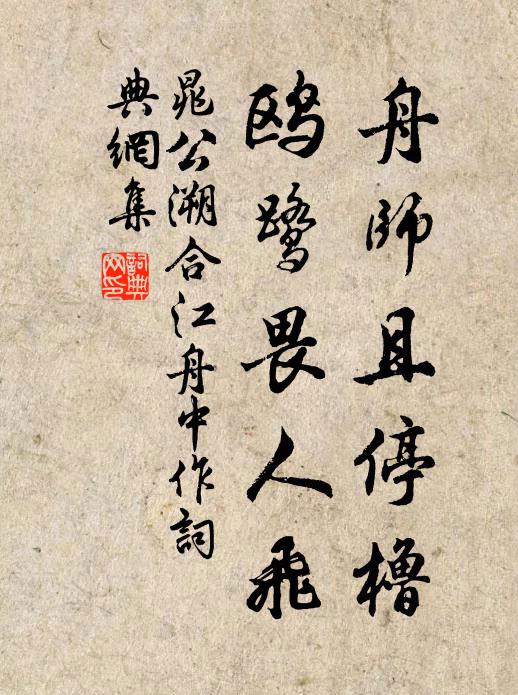 舟師且停櫓
鷗鷺畏人飛
晁公溯合江舟中作詞
典網集
詞典網印